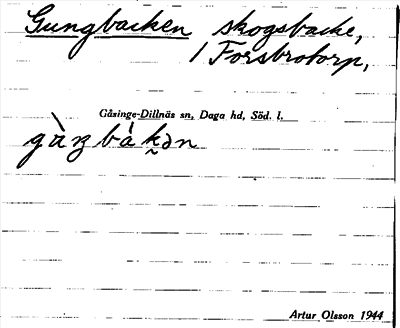 Gungbacken skogsbacke,
/ Forsbrotorp,
Gåsinge-Dillnäs sn, Daga hd, Söd. l.
gὰŋbák̬ən
Artur Olsson 1944